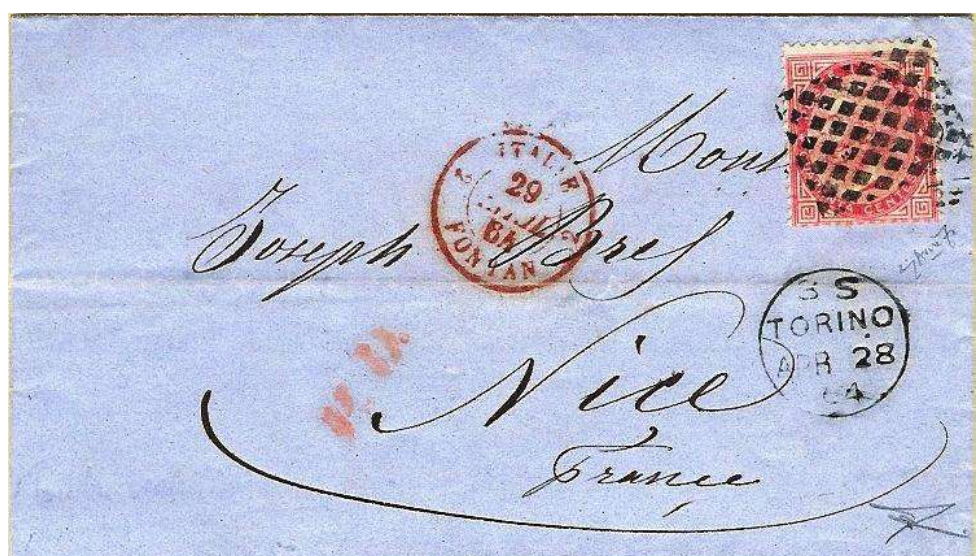 Mons
Joseph Bres
Nice
France
ITALIE
29
64
FONTAN
2
SS
TORINO
APR 28
64
CENT